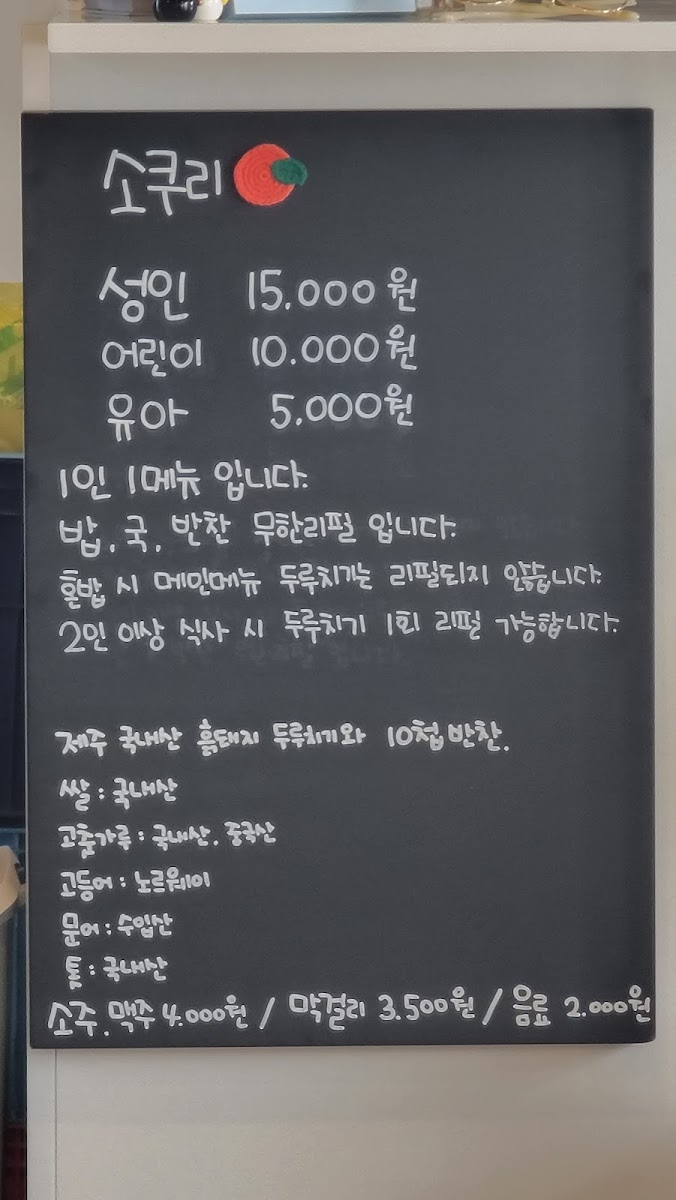 소쿠리
성인 15.000원
어린이 10.000원
유아 5.000원
1인 1메뉴 입니다.
밥, 국, 반찬 무한리필 입니다.
혼밥 시 메인메뉴 두루치기는 리필되지 않습니다.
2인 이상 식사 시 두루치기 1회 리필 가능합니다.
제주 국내산 흙돼지 두루치기와 10첩반찬.
쌀 : 국내산
고춧가루 : 국내산. 중국산
고등어 : 노르웨이
문어 : 수입산
톳 : 국내산
소주.맥주 4.000원 / 막걸리 3.500원 / 음료 2.000원